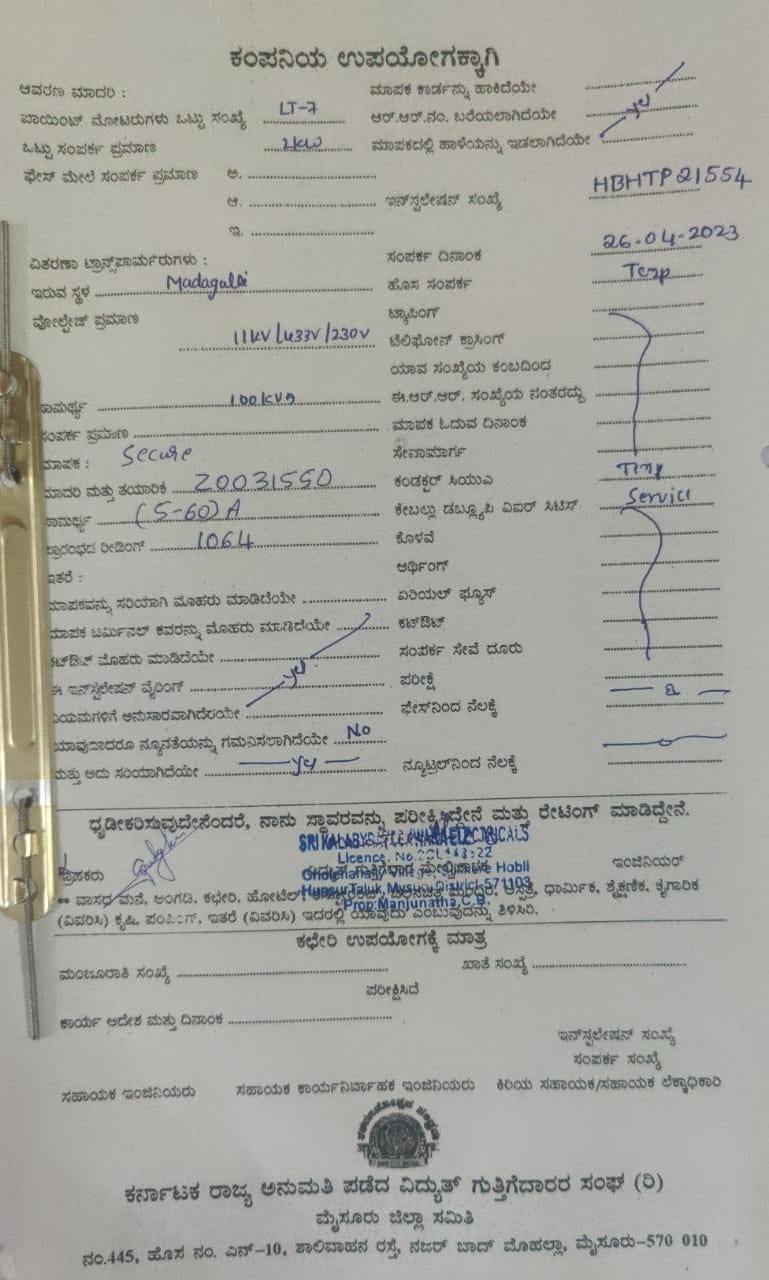 ಕಂಪನಿಯ ಉಪಯೋಗಕ್ಕಾಗಿ
ಆವರಣ ಮಾದರಿ : ಮಾಪಕ ಕಾರ್ಡನ್ನು ಹಾಕಿದೆಯೇ
ಪಾಯಿಂಟ್ ಮೋಟರುಗಳು ಒಟ್ಟು ಸಂಖ್ಯೆ LT-7 ಆರ್.ಆರ್.ನಂ. ಬರೆಯಲಾಗಿದೆಯೇ yes
ಒಟ್ಟು ಸಂಪರ್ಕ ಪ್ರಮಾಣ 2kw ಮಾಪಕದಲ್ಲಿ ಹಾಳೆಯನ್ನು ಇಡಲಾಗಿದೆಯೇ
ಫೇಸ್ ಮೇಲೆ ಸಂಪರ್ಕ ಪ್ರಮಾಣ ಅ.
ಆ. ಇನ್‌ಸ್ಟಲೇಷನ್ ಸಂಖ್ಯೆ HBHTP21554
ಇ.
ವಿತರಣಾ ಟ್ರಾನ್ಸ್‌ಪಾರ್ಮರುಗಳು : ಸಂಪರ್ಕ ದಿನಾಂಕ 26-04-2023
ಇರುವ ಸ್ಥಳ Madagalli ಹೊಸ ಸಂಪರ್ಕ Temp
ವೋಲ್ಟೇಜ್ ಪ್ರಮಾಣ ಟ್ಯಾಪಿಂಗ್
11kV/433V/230V ಟೆಲಿಫೋನ್ ಕ್ರಾಸಿಂಗ್
ಯಾವ ಸಂಖ್ಯೆಯ ಕಂಬದಿಂದ
ಸಾಮರ್ಥ್ಯ 100kVA ಈ.ಆರ್.ಆರ್. ಸಂಖ್ಯೆಯ ನಂತರದ್ದು
ಸಂಪರ್ಕ ಪ್ರಮಾಣ ಮಾಪಕ ಓದುವ ದಿನಾಂಕ
ಮಾಪಕ : Secure ಸೇವಾಮಾರ್ಗ
ಮಾದರಿ ಮತ್ತು ತಯಾರಿಕೆ ಕಂಡಕ್ಟರ್ ಸಿಯುವಿ
ಸಾಮರ್ಥ್ಯ (5-60)A ಕೇಬಲ್ಲು ಡಬ್ಲ್ಯೂಪಿ ವಿಐರ್ ಸಿಟಿಸ್ Service
ಪ್ರಾರಂಭದ ರೀಡಿಂಗ್ 1064 ಕೊಳವೆ
ಇತರೆ : ಅರ್ಥಿಂಗ್
ಮಾಪಕವನ್ನು ಸರಿಯಾಗಿ ಮೊಹರು ಮಾಡಿದೆಯೇ ಏರಿಯಲ್ ಫ್ಯೂಸ್
ಮಾಪಕ ಟರ್ಮಿನಲ್ ಕವರನ್ನು ಮೊಹರು ಮಾಡಿದೆಯೇ ಕಟೌಟ್
ಕಟೌಟ್ ಮೊಹರು ಮಾಡಿದೆಯೇ ಸಂಪರ್ಕ ಸೇವೆ ದೂರು
ಈ ಇನ್‌ಸ್ಟಲೇಷನ್ ವೈರಿಂಗ್ yes ಪರೀಕ್ಷೆ
ನಿಯಮಗಳಿಗೆ ಅನುಸಾರವಾಗಿದೆಯೇ ಫೇಸ್‌ನಿಂದ ನೆಲಕ್ಕೆ
ಯಾವುದಾದರೂ ನ್ಯೂನತೆಯನ್ನು ಗಮನಿಸಲಾಗಿದೆಯೇ No
ಮತ್ತು ಅದು ಸರಿಯಾಗಿದೆಯೇ yes ನ್ಯೂಟ್ರಲ್‌ನಿಂದ ನೆಲಕ್ಕೆ
ಧೃಡೀಕರಿಸುವುದೇನೆಂದರೆ, ನಾನು ಸ್ಥಾವರವನ್ನು ಪರೀಕ್ಷಿಸಿದ್ದೇನೆ ಮತ್ತು ರೇಟಿಂಗ್ ಮಾಡಿದ್ದೇನೆ.
ELECTRICALS
Licence. No.
ಗ್ರಾಹಕರು ಇಂಜಿನಿಯರ್
Hunsur Taluk, Mysuru District-571103
** ವಾಸದ ಮನೆ, ಅಂಗಡಿ, ಕಛೇರಿ, ಹೋಟೆಲ್, ಆಸ್ಪತ್ರೆ, ಧಾರ್ಮಿಕ, ಶೈಕ್ಷಣಿಕ, ಕೈಗಾರಿಕ
Prop: Manjunatha.C.B.
(ವಿವರಿಸಿ) ಕೃಷಿ, ಪಂಪಿಂಗ್, ಇತರೆ (ವಿವರಿಸಿ) ಇದರಲ್ಲಿ ಯಾವುದು ಎಂಬುವುದನ್ನು ತಿಳಿಸಿರಿ.
ಕಛೇರಿ ಉಪಯೋಗಕ್ಕೆ ಮಾತ್ರ
ಮಂಜೂರಾತಿ ಸಂಖ್ಯೆ ಖಾತೆ ಸಂಖ್ಯೆ
ಪರೀಕ್ಷಿಸಿದೆ
ಕಾರ್ಯ ಆದೇಶ ಮತ್ತು ದಿನಾಂಕ
ಇನ್‌ಸ್ಟಲೇಷನ್ ಸಂಖ್ಯೆ
ಸಂಪರ್ಕ ಸಂಖ್ಯೆ
ಸಹಾಯಕ ಇಂಜಿನಿಯರು ಸಹಾಯಕ ಕಾರ್ಯನಿರ್ವಾಹಕ ಇಂಜಿನಿಯರು ಕಿರಿಯ ಸಹಾಯಕ/ಸಹಾಯಕ ಲೆಕ್ಕಾಧಿಕಾರಿ
ಕರ್ನಾಟಕ ರಾಜ್ಯ ಅನುಮತಿ ಪಡೆದ ವಿದ್ಯುತ್ ಗುತ್ತಿಗೆದಾರರ ಸಂಘ (ರಿ)
ಮೈಸೂರು ಜಿಲ್ಲಾ ಸಮಿತಿ
ನಂ.445, ಹೊಸ ನಂ. ಎನ್-10, ಶಾಲಿವಾಹನ ರಸ್ತೆ, ನಜರ್ ಬಾದ್ ಮೊಹಲ್ಲಾ, ಮೈಸೂರು-570 010